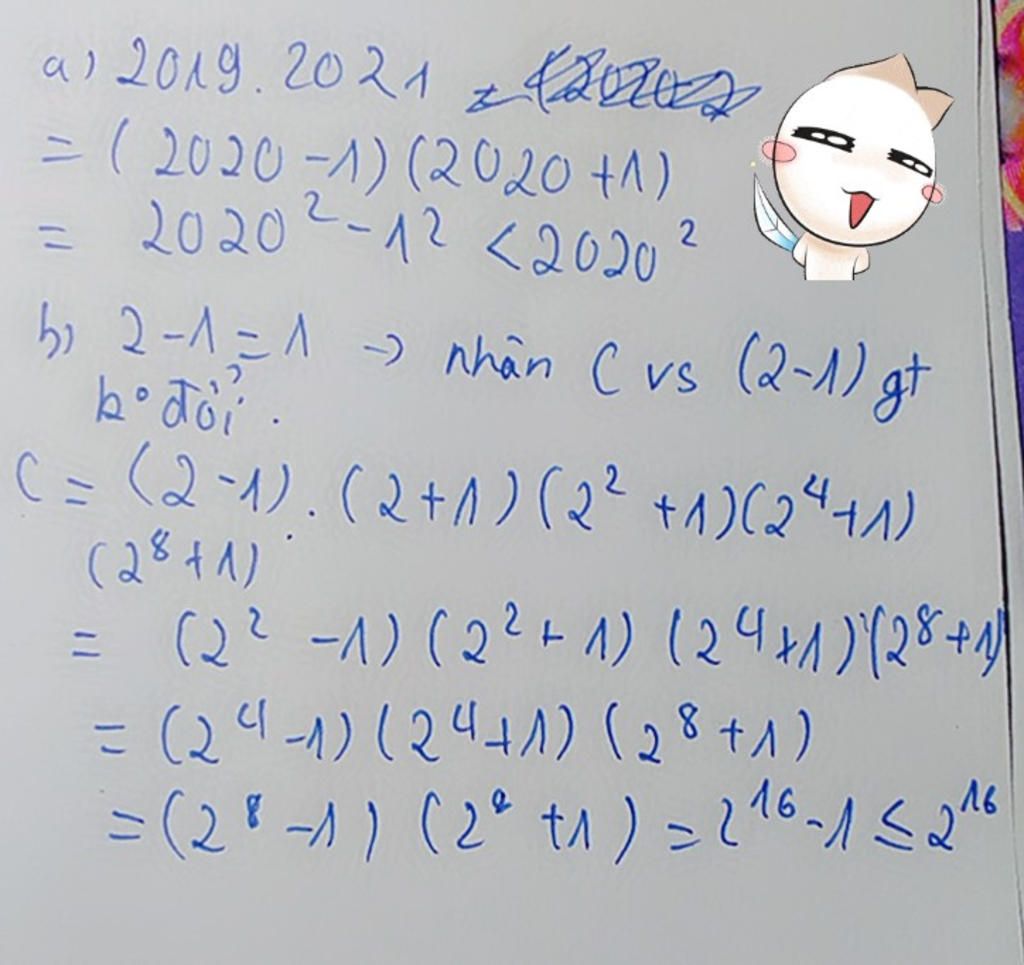 a) 2019.2021
= (2020 -1) (2020 +1)
= 2020² - 1² < 2020²
b) 2 -1 = 1 -> nhân C vs (2-1) gt
k° đổi.
C = (2 -1) . (2 +1) (2² +1)(2⁴+1)
(2⁸+1)
= (2² -1) (2² + 1) (2⁴+1) (2⁸+1)
= (2⁴ -1) (2⁴+1) (2⁸ +1)
= (2⁸ -1) (2⁸ +1) = 2¹⁶ -1 ≤ 2¹⁶